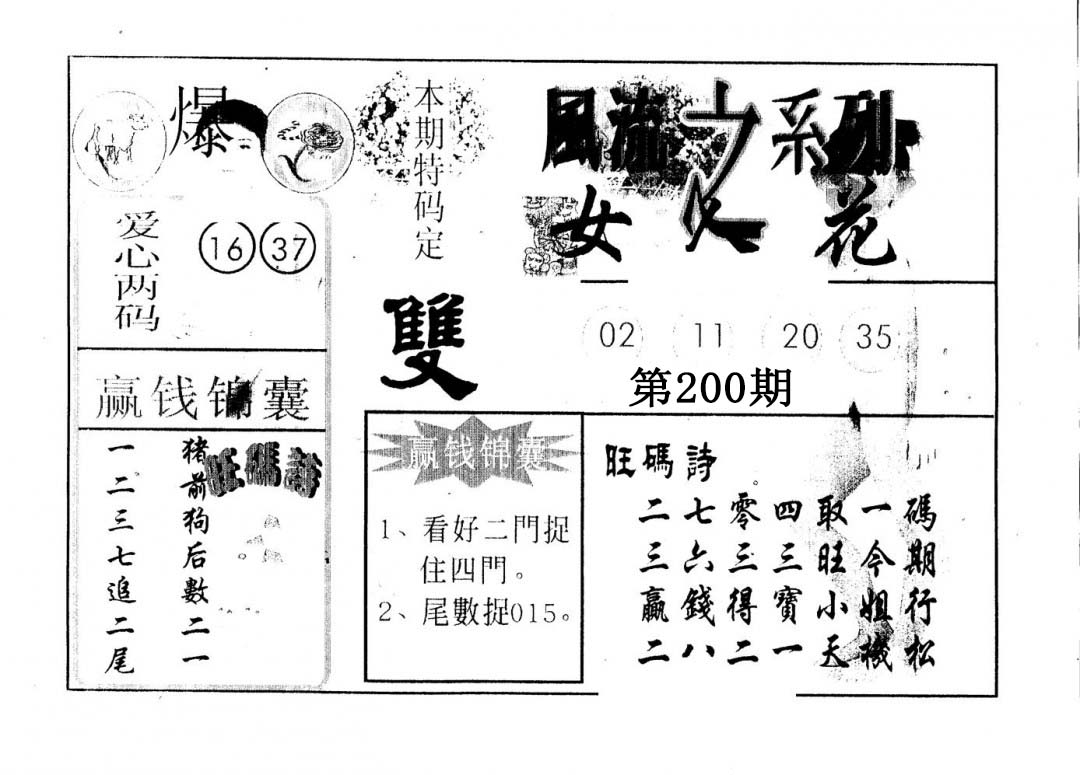 爆
本期特码定
雙
風流之系列
女人花
爱心两码
16 37
02 11 20 35
第200期
赢钱锦囊
猪前狗后數二一
一二三七追二尾
旺碼詩
赢钱锦囊
1、看好二門捉
住四門。
2、尾數捉015。
旺碼詩
二七零四取一碼
三六三三旺今期
贏錢得寶小姐行
二八二一天機松